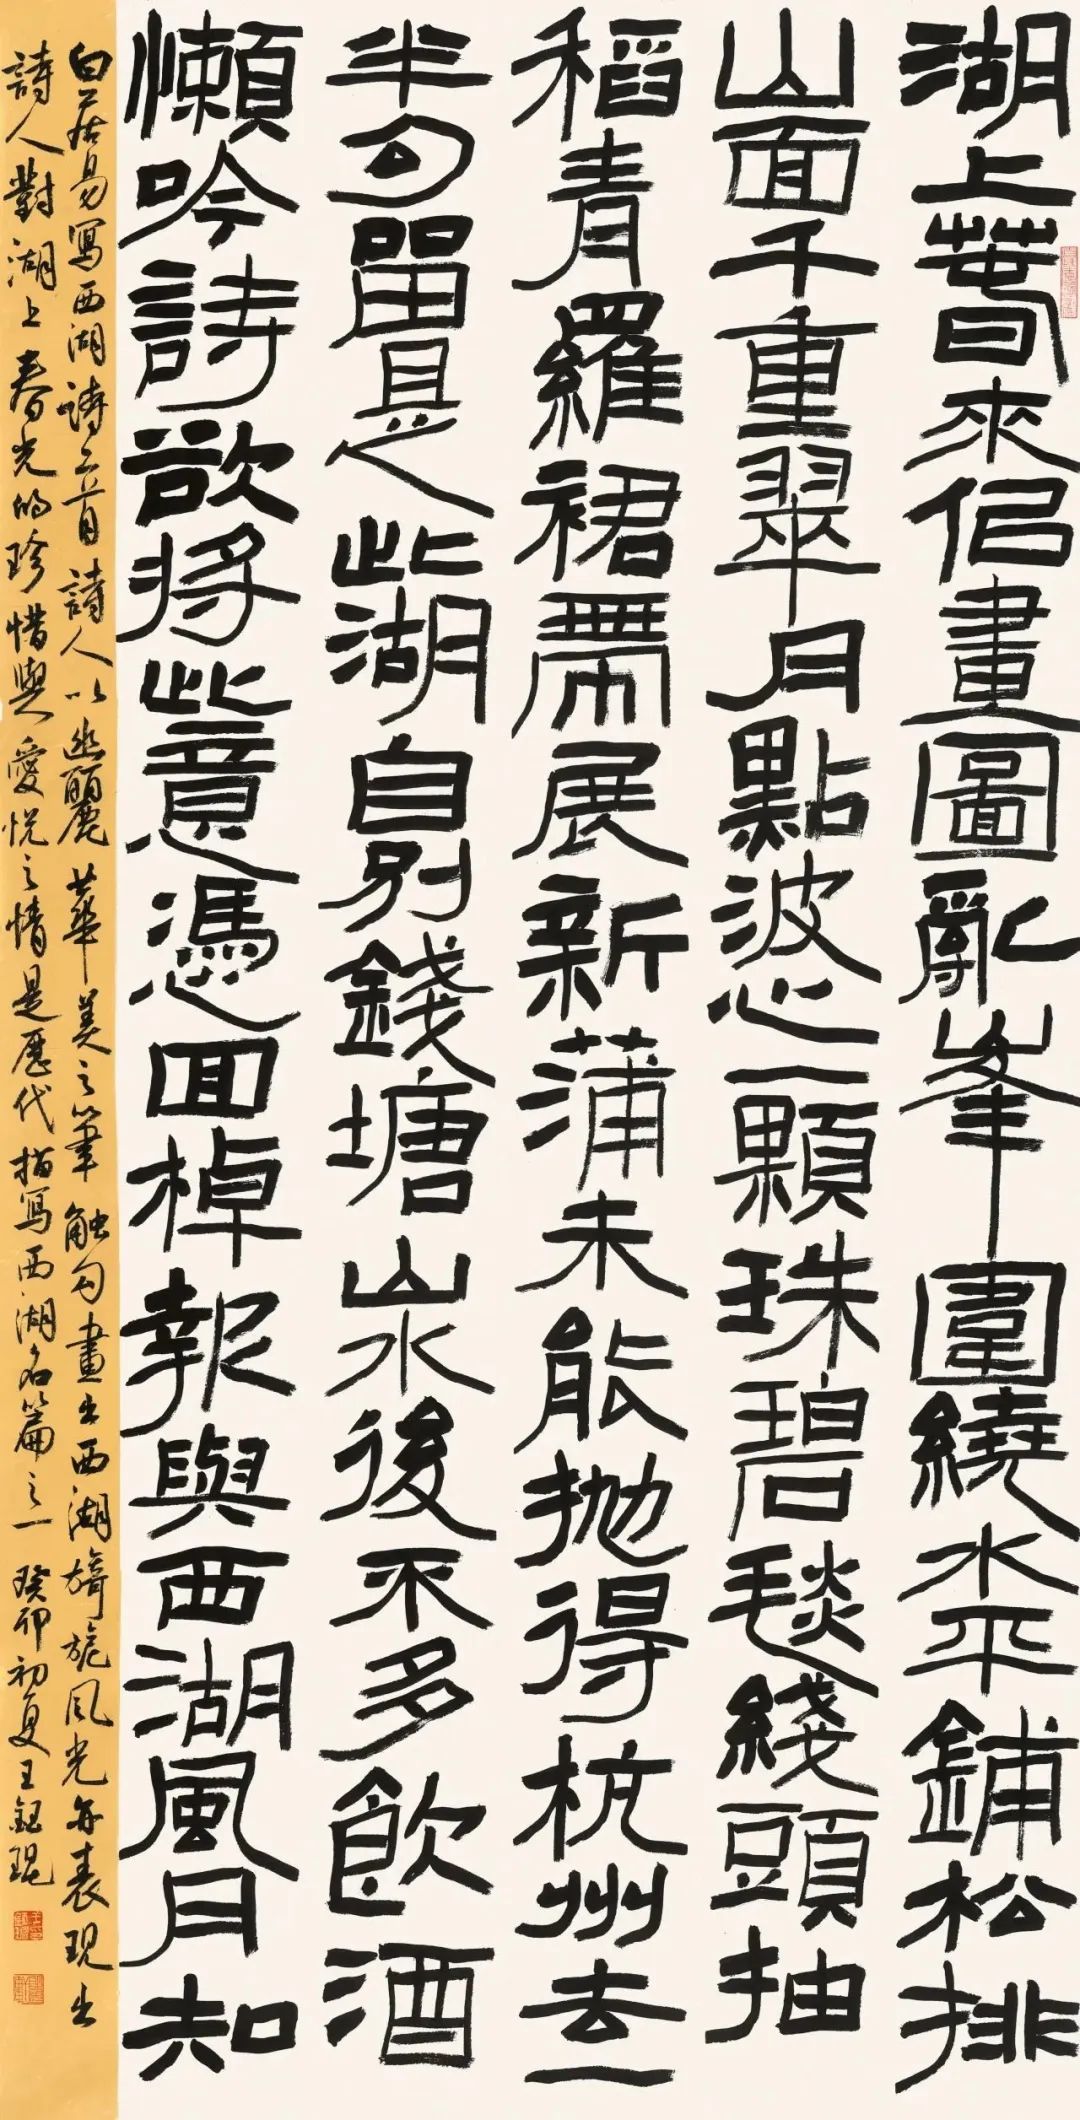 湖上萅來佀畫圖亂峯圍繞水平鋪松排
山面千重翠月點波心一顆珠碧毯綫頭抽
稻青羅裙帶展新蒲未能抛得杭州去一
半勾畱是此湖自别錢塘山水後不多飲酒
懶吟詩欲將此意憑回棹報與西湖風月知
白居易寫西湖詩二首 詩人以幽麗華美之筆触勾畫出西湖旖旎风光并表現出
詩人對湖上春光的珍惜與愛悅之情是歷代描寫西湖名篇之一 癸卯初夏王琨